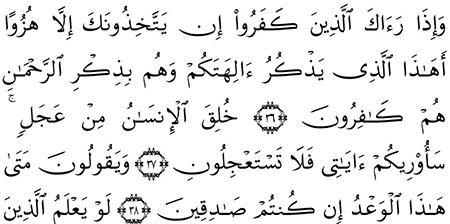 وَإِذَا رَءَاكَ ٱلَّذِينَ كَفَرُوٓا۟ إِن يَتَّخِذُونَكَ إِلَّا هُزُوًا
أَهَٰذَا ٱلَّذِى يَذْكُرُ ءَالِهَتَكُمْ وَهُم بِذِكْرِ ٱلرَّحْمَٰنِ
هُمْ كَٰفِرُونَ ٣٦ خُلِقَ ٱلْإِنسَٰنُ مِنْ عَجَلٍ ۚ
سَأُو۟رِيكُمْ ءَايَٰتِى فَلَا تَسْتَعْجِلُونِ ٣٧ وَيَقُولُونَ مَتَىٰ
هَٰذَا ٱلْوَعْدُ إِن كُنتُمْ صَٰدِقِينَ ٣٨ لَوْ يَعْلَمُ ٱلَّذِينَ